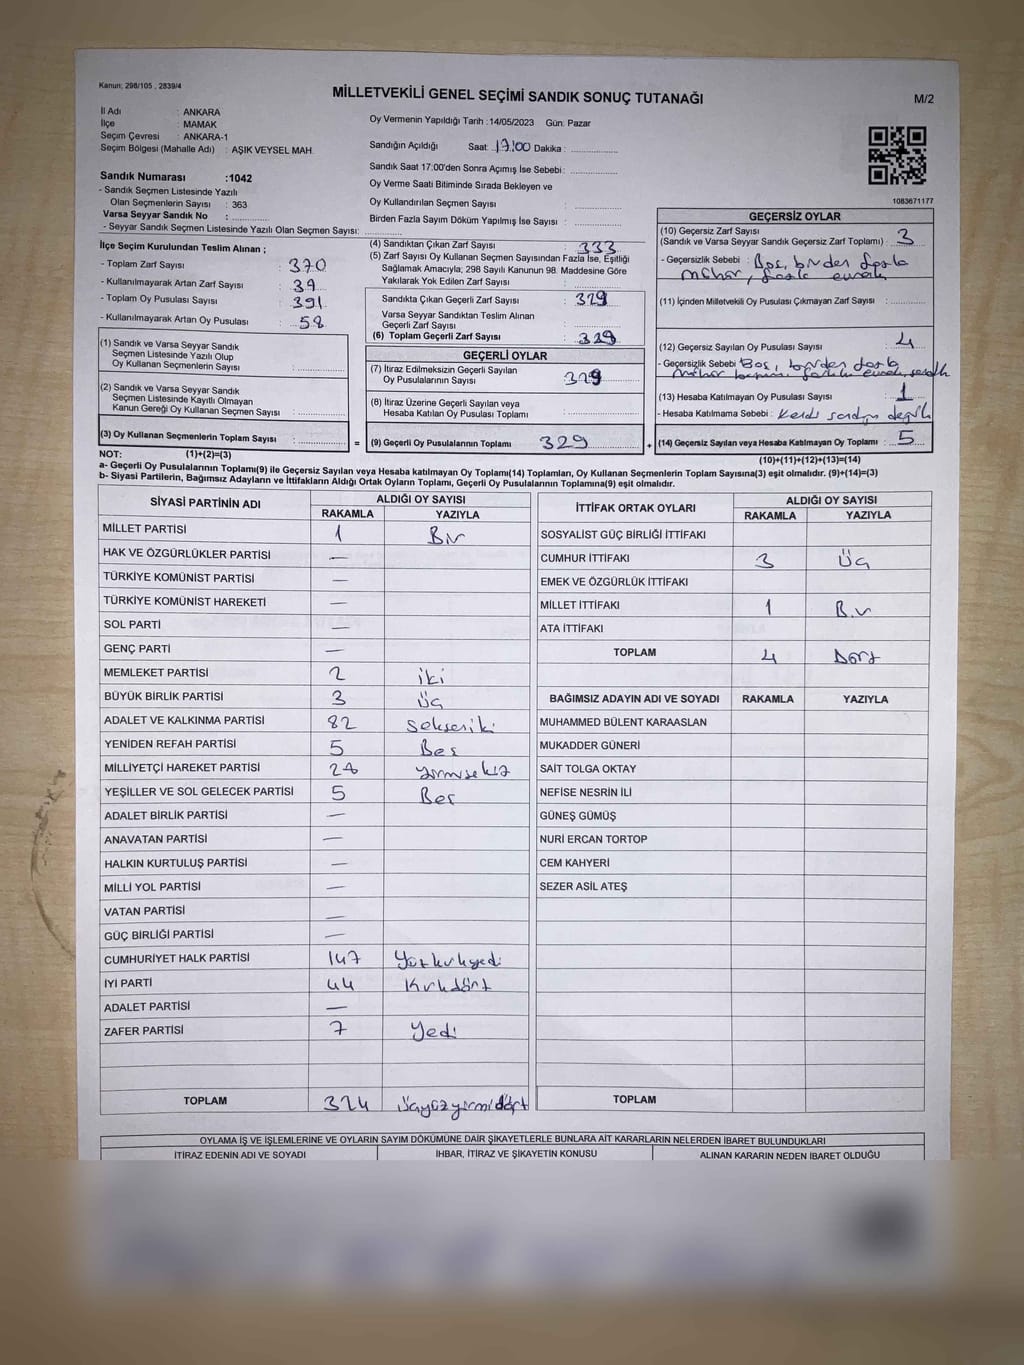 Kanun; 298/105 , 2839/4
MİLLETVEKİLİ GENEL SEÇİMİ SANDIK SONUÇ TUTANAĞI
M/2
İl Adı : ANKARA
İlçe : MAMAK
Seçim Çevresi : ANKARA-1
Seçim Bölgesi (Mahalle Adı) : AŞIK VEYSEL MAH.
Sandık Numarası :1042
- Sandık Seçmen Listesinde Yazılı
Olan Seçmenlerin Sayısı : 363
Varsa Seyyar Sandık No :
- Seyyar Sandık Seçmen Listesinde Yazılı Olan Seçmen Sayısı:
Oy Vermenin Yapıldığı Tarih :14/05/2023 Gün: Pazar
Sandığın Açıldığı Saat: 17:00 Dakika :
Sandık Saat 17:00'den Sonra Açımış İse Sebebi:
Oy Verme Saati Bitiminde Sırada Bekleyen ve
Oy Kullandırılan Seçmen Sayısı :
Birden Fazla Sayım Döküm Yapılmış İse Sayısı :
1083671177
İlçe Seçim Kurulundan Teslim Alınan ;
- Toplam Zarf Sayısı : 370
- Kullanılmayarak Artan Zarf Sayısı : 39
- Toplam Oy Pusulası Sayısı : 391
- Kullanılmayarak Artan Oy Pusulası : 58
(1) Sandık ve Varsa Seyyar Sandık
Seçmen Listesinde Yazılı Olup
Oy Kullanan Seçmenlerin Sayısı :
(2) Sandık ve Varsa Seyyar Sandık
Seçmen Listesinde Kayıtlı Olmayan
Kanun Gereği Oy Kullanan Seçmen Sayısı :
(3) Oy Kullanan Seçmenlerin Toplam Sayısı :
(4) Sandıktan Çıkan Zarf Sayısı : 333
(5) Zarf Sayısı Oy Kullanan Seçmen Sayısından Fazla İse, Eşitliği
Sağlamak Amacıyla; 298 Sayılı Kanunun 98. Maddesine Göre
Yakılarak Yok Edilen Zarf Sayısı :
Sandıkta Çıkan Geçerli Zarf Sayısı : 329
Varsa Seyyar Sandıktan Teslim Alınan
Geçerli Zarf Sayısı :
(6) Toplam Geçerli Zarf Sayısı : 329
GEÇERLİ OYLAR
(7) İtiraz Edilmeksizin Geçerli Sayılan
Oy Pusulalarının Sayısı : 329
(8) İtiraz Üzerine Geçerli Sayılan veya
Hesaba Katılan Oy Pusulası Toplamı :
= (9) Geçerli Oy Pusulalarının Toplamı 329 +
GEÇERSİZ OYLAR
(10) Geçersiz Zarf Sayısı
(Sandık ve Varsa Seyyar Sandık Geçersiz Zarf Toplamı) : 3
- Geçersiz Sebebi : Boş, birden fazla
mühür, fazla evrak
(11) İçinden Milletvekili Oy Pusulası Çıkmayan Zarf Sayısı :
(12) Geçersiz Sayılan Oy Pusulası Sayısı : 4
- Geçersizlik Sebebi Boş, birden fazla
mühür
(13) Hesaba Katılmayan Oy Pusulası Sayısı : 1
- Hesaba Katılmama Sebebi : Kendi sandığı değil
(14) Geçersiz Sayılan veya Hesaba Katılmayan Oy Toplamı : 5
NOT: (1)+(2)=(3)
(10)+(11)+(12)+(13)=(14)
a- Geçerli Oy Pusulalarının Toplamı(9) ile Geçersiz Sayılan veya Hesaba katılmayan Oy Toplamı(14) Toplamları, Oy Kullanan Seçmenlerin Toplam Sayısına(3) eşit olmalıdır. (9)+(14)=(3)
b- Siyasi Partilerin, Bağımsız Adayların ve İttifakların Aldığı Ortak Oyların Toplamı, Geçerli Oy Pusulalarının Toplamına(9) eşit olmalıdır.
SİYASİ PARTİNİN ADI ALDIĞI OY SAYISI
RAKAMLA YAZIYLA
MİLLET PARTİSİ 1 Bir
HAK VE ÖZGÜRLÜKLER PARTİSİ —
TÜRKİYE KOMÜNİST PARTİSİ —
TÜRKİYE KOMÜNİST HAREKETİ —
SOL PARTİ —
GENÇ PARTİ —
MEMLEKET PARTİSİ 2 iki
BÜYÜK BİRLİK PARTİSİ 3 Üç
ADALET VE KALKINMA PARTİSİ 82 Sekseniki
YENİDEN REFAH PARTİSİ 5 Beş
MİLLİYETÇİ HAREKET PARTİSİ 28 yirmisekiz
YEŞİLLER VE SOL GELECEK PARTİSİ 5 Beş
ADALET BİRLİK PARTİSİ —
ANAVATAN PARTİSİ —
HALKIN KURTULUŞ PARTİSİ —
MİLLİ YOL PARTİSİ —
VATAN PARTİSİ —
GÜÇ BİRLİĞİ PARTİSİ —
CUMHURİYET HALK PARTİSİ 147 Yüzkırkyedi
İYİ PARTİ 44 Kırkdört
ADALET PARTİSİ —
ZAFER PARTİSİ 7 Yedi
TOPLAM 324 Üçyüzyirmidört
İTTİFAK ORTAK OYLARI ALDIĞI OY SAYISI
RAKAMLA YAZIYLA
SOSYALİST GÜÇ BİRLİĞİ İTTİFAKI
CUMHUR İTTİFAKI 3 Üç
EMEK VE ÖZGÜRLÜK İTTİFAKI
MİLLET İTTİFAKI 1 Bir
ATA İTTİFAKI
TOPLAM 4 Dört
BAĞIMSIZ ADAYIN ADI VE SOYADI RAKAMLA YAZIYLA
MUHAMMED BÜLENT KARAASLAN
MUKADDER GÜNERİ
SAİT TOLGA OKTAY
NEFİSE NESRİN İLİ
GÜNEŞ GÜMÜŞ
NURİ ERCAN TORTOP
CEM KAHYERİ
SEZER ASİL ATEŞ
TOPLAM
OYLAMA İŞ VE İŞLEMLERİNE VE OYLARIN SAYIM DÖKÜMÜNE DAİR ŞİKAYETLERLE BUNLARA AİT KARARLARIN NELERDEN İBARET BULUNDUKLARI
İTİRAZ EDENİN ADI VE SOYADI İHBAR, İTİRAZ VE ŞİKAYETİN KONUSU ALINAN KARARIN NEDEN İBARET OLDUĞU